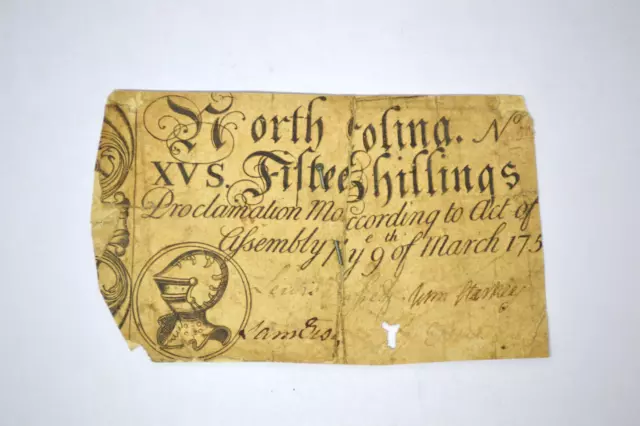 North olina. No
XVS. Fiftee Shillings
Proclamation Mo ccording to Act of
Assembly ye 9th of March 175